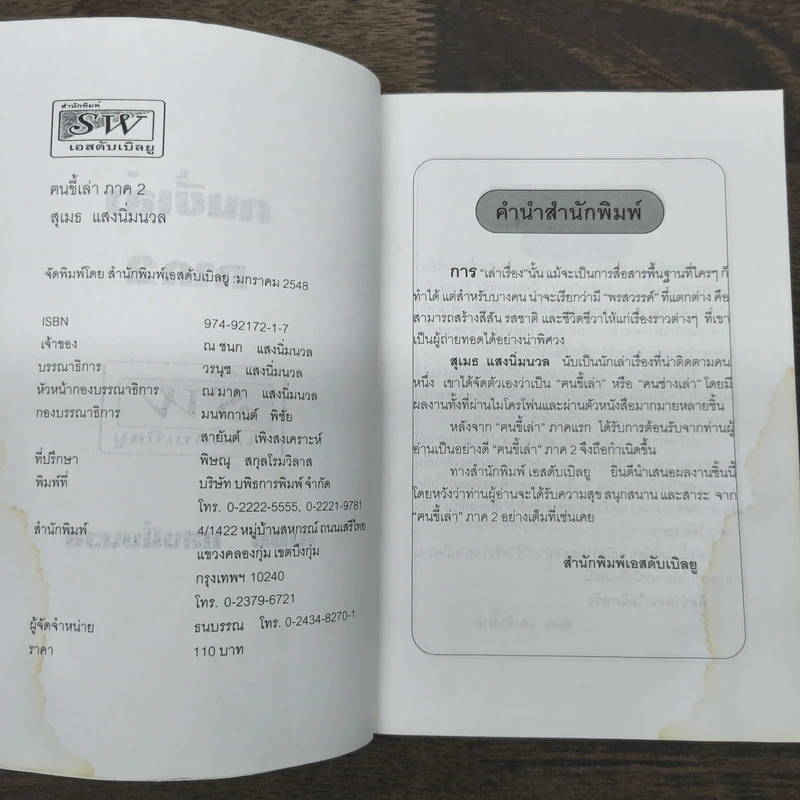 สำนักพิมพ์
SW
เอสดับเบิลยู
ฅนขี้เล่า ภาค 2
สุเมธ แสงนิ่มนวล
จัดพิมพ์โดย สำนักพิมพ์เอสดับเบิลยู :มกราคม 2548
ISBN 974-92172-1-7
เจ้าของ ณ ชนก แสงนิ่มนวล
บรรณาธิการ วรนุช แสงนิ่มนวล
หัวหน้ากองบรรณาธิการ ณ มาดา แสงนิ่มนวล
กองบรรณาธิการ มนทกานต์ พิชัย
สายันต์ เพิงสงเคราะห์
ที่ปรึกษา พิษณุ สกุลโรมวิลาส
พิมพ์ที่ บริษัท บพิธการพิมพ์ จำกัด
โทร. 0-2222-5555, 0-2221-9781
สำนักพิมพ์ 4/1422 หมู่บ้านสหกรณ์ ถนนเสรีไทย
แขวงคลองกุ่ม เขตบึงกุ่ม
กรุงเทพฯ 10240
โทร. 0-2379-6721
ผู้จัดจำหน่าย ธนบรรณ โทร. 0-2434-8270-1
ราคา 110 บาท
คำนำสำนักพิมพ์
การ "เล่าเรื่อง"นั้น แม้จะเป็นการสื่อสารพื้นฐานที่ใครๆ ก็
ทำได้ แต่สำหรับบางคน น่าจะเรียกว่ามี "พรสวรรค์" ที่แตกต่าง คือ
สามารถสร้างสีสัน รสชาติ และชีวิตชีวาให้แก่เรื่องราวต่างๆ ที่เขา
เป็นผู้ถ่ายทอดได้อย่างน่าพิศวง
สุเมธ แสงนิ่มนวล นับเป็นนักเล่าเรื่องที่น่าติดตามคน
หนึ่ง เขาได้จัดตัวเองว่าเป็น "ฅนขี้เล่า" หรือ "ฅนช่างเล่า" โดยมี
ผลงานทั้งที่ผ่านไมโครโฟนและผ่านตัวหนังสือมากมายหลายชิ้น
หลังจาก "ฅนขี้เล่า" ภาคแรก ได้รับการต้อนรับจากท่านผู้
อ่านเป็นอย่างดี "ฅนขี้เล่า" ภาค 2 จึงถือกำเนิดขึ้น
ทางสำนักพิมพ์ เอสดับเบิลยู ยินดีนำเสนอผลงานชิ้นนี้
โดยหวังว่าท่านผู้อ่านจะได้รับความสุข สนุกสนาน และสาระ จาก
"ฅนขี้เล่า" ภาค 2 อย่างเต็มที่เช่นเคย
สำนักพิมพ์เอสดับเบิลยู